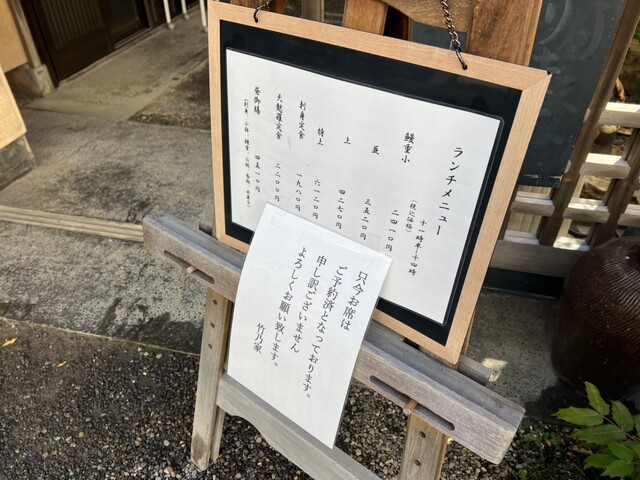 ランチメニュー
十一時半~十四時
(税込価格)
鰻重小 二四一〇円
並 三五二〇円
上 四二七〇円
特上 六一二〇円
刺身定食 一九八〇円
天麩羅定食 二二〇〇円
昼御膳 四五一〇円
只今お席は
ご予約済となっております。
申し訳ございません
よろしくお願い致します。
竹乃家